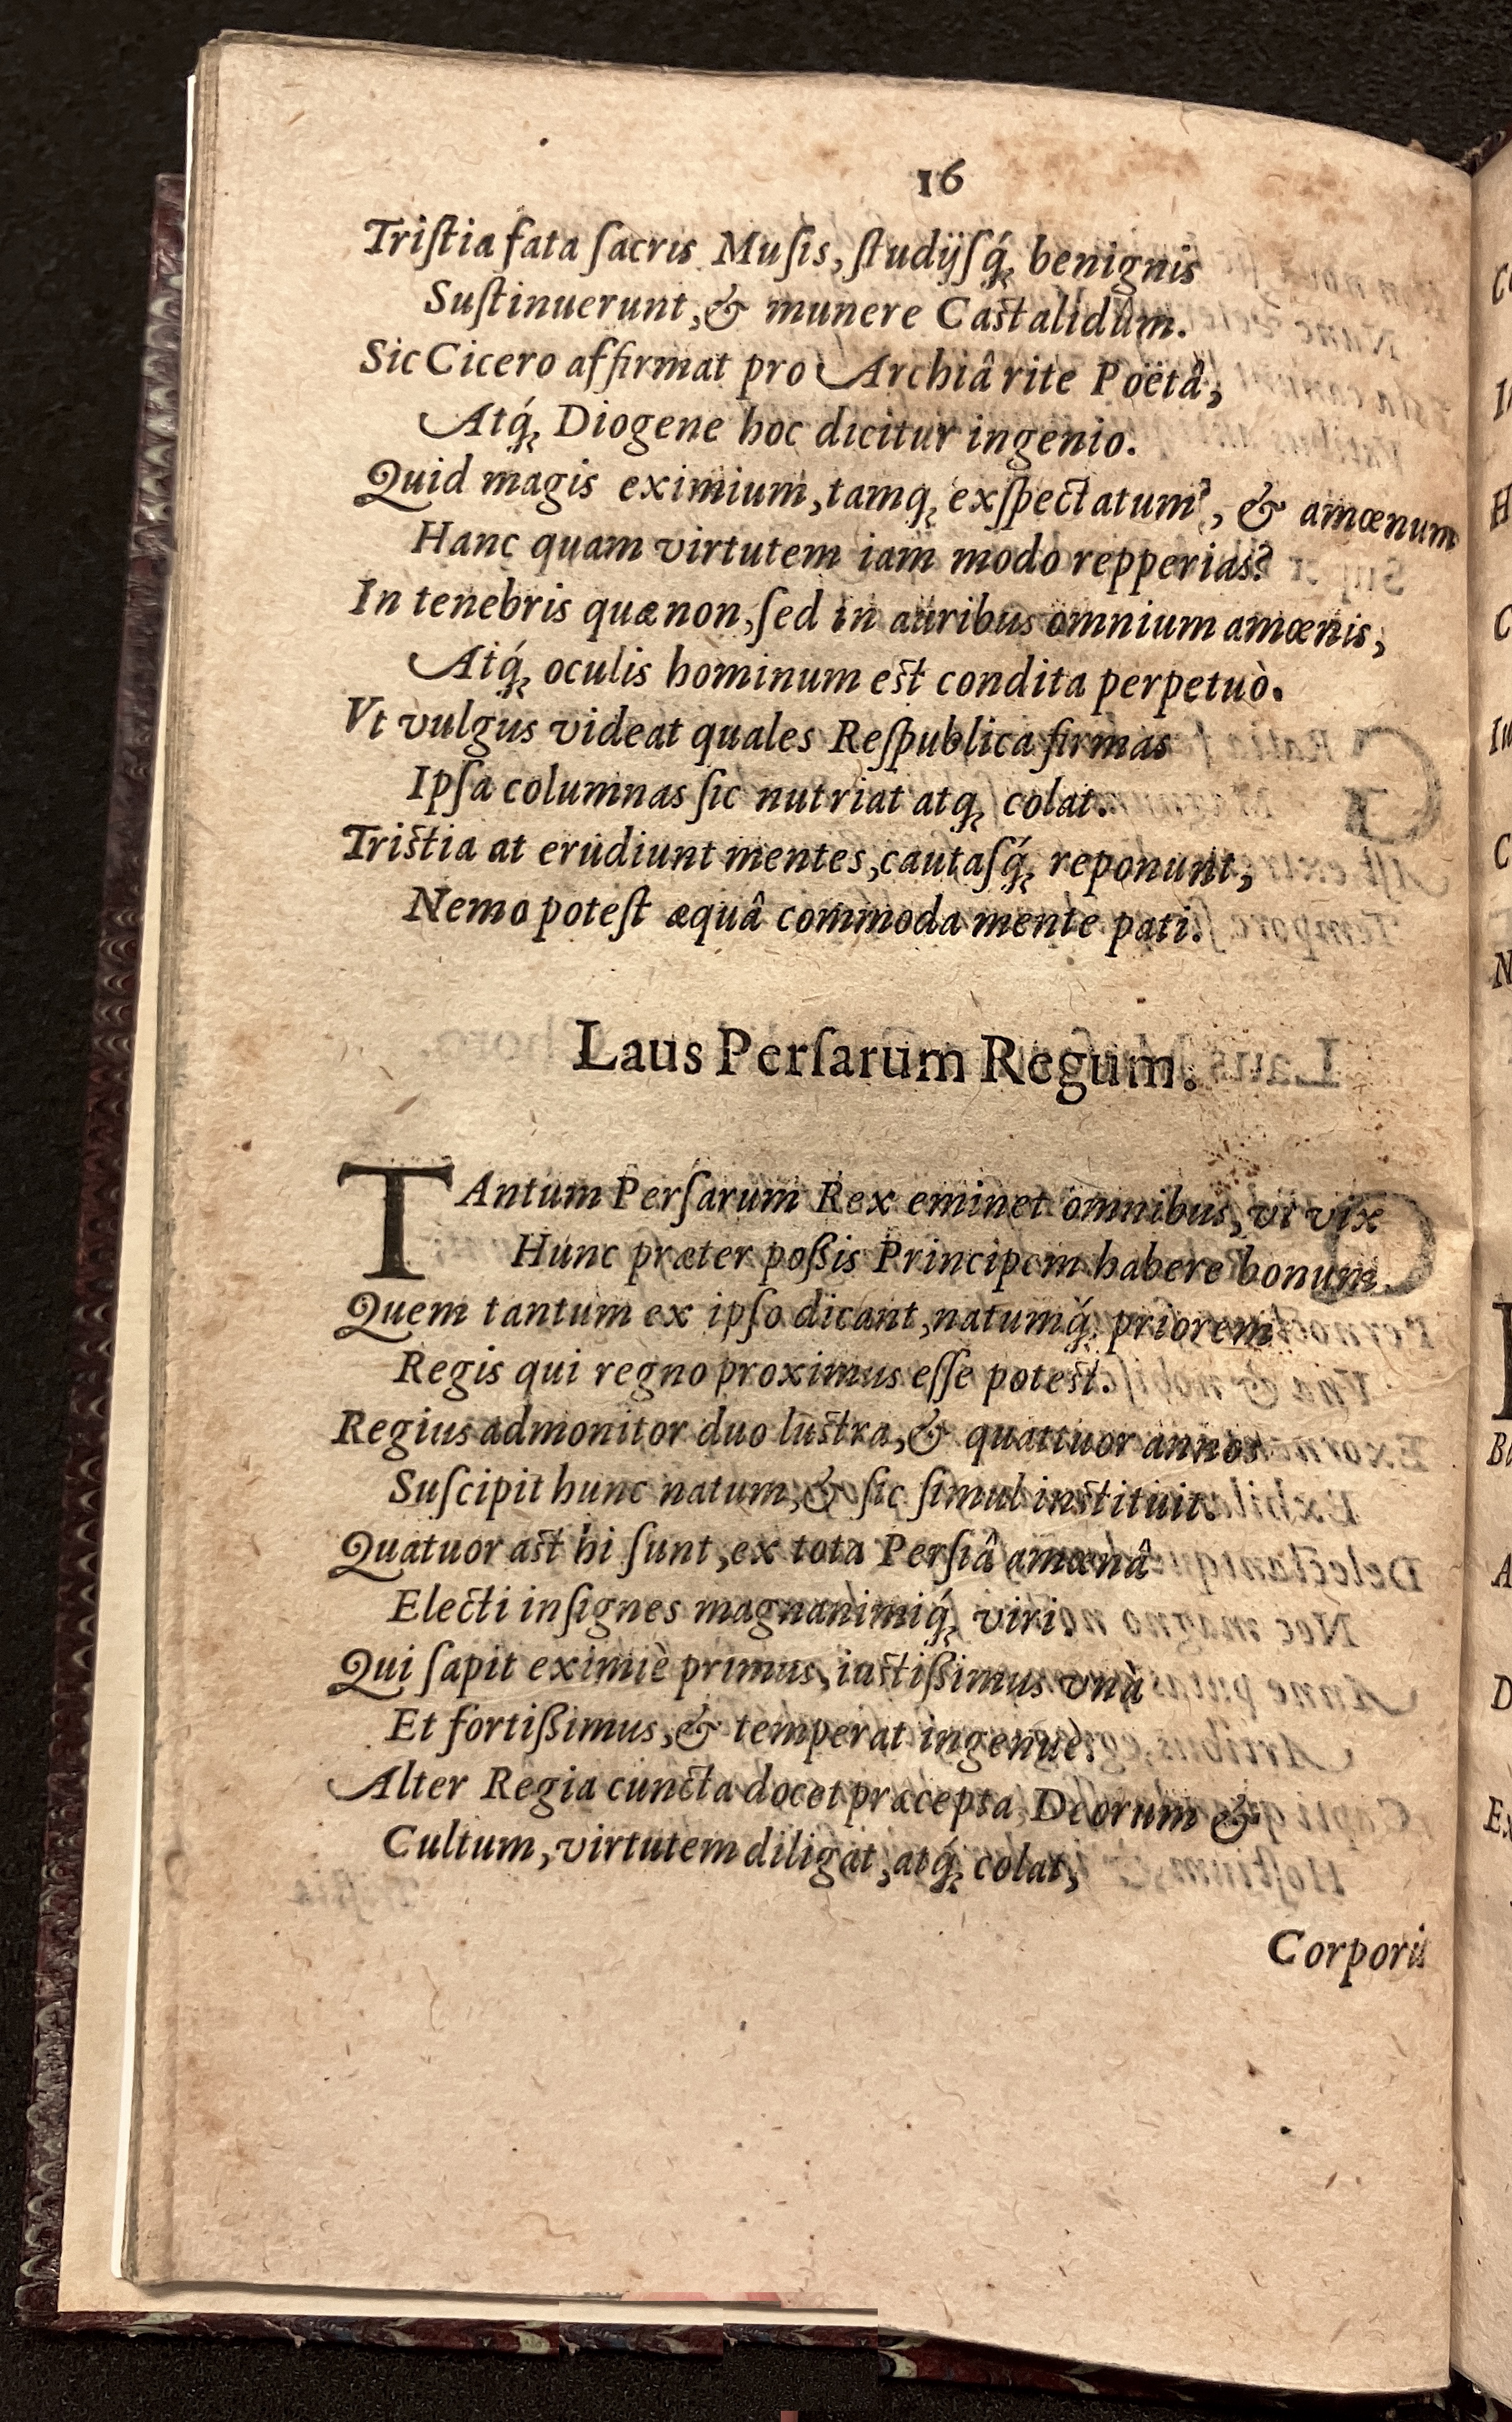 16
Triſtia fata ſacris Muſis, ſtudijſq́; benignis
Suſtinuerunt, & munere Castalidûm.
Sic Cicero affirmat pro Archiâ rite Poëtâ,
Atq́; Diogene hoc dicitur ingenio.
Quid magis eximium, tamq; exſpectatum?, & amœnum
Hanc quam virtutem iam modo repperias?
In tenebris quæ non, ſed in auribus omnium amœnis,
Atq́; oculis hominum est condita perpetuò.
Vt vulgus videat quales Reſpublica firmas
Ipſa columnas ſic nutriat atq; colat.
Tristia at erudiunt mentes, cautaſq́; reponunt,
Nemo poteſt æquâ commoda mente pati.
Laus Perſarum Regum.
TAntum Perſarum Rex eminet omnibus, vt vix
Hunc præter poßis Principem habere bonum
Quem tantum ex ipſo dicant, natumq́; priorem
Regis qui regno proximus eſſe potest.
Regius admonitor duo lustra, & quattuor annos
Suſcipit hunc natum, & ſic ſimul instituit.
Quatuor ast hi ſunt, ex tota Perſiâ amœnâ
Electi inſignes magnanimiq́; viri.
Qui ſapit eximiè primus, iustißimus vnà
Et fortißimus, & temperat ingenuè.
Alter Regia cuncta docet præcepta Deorum &
Cultum, virtutem diligat, atq́; colat,
Corporis